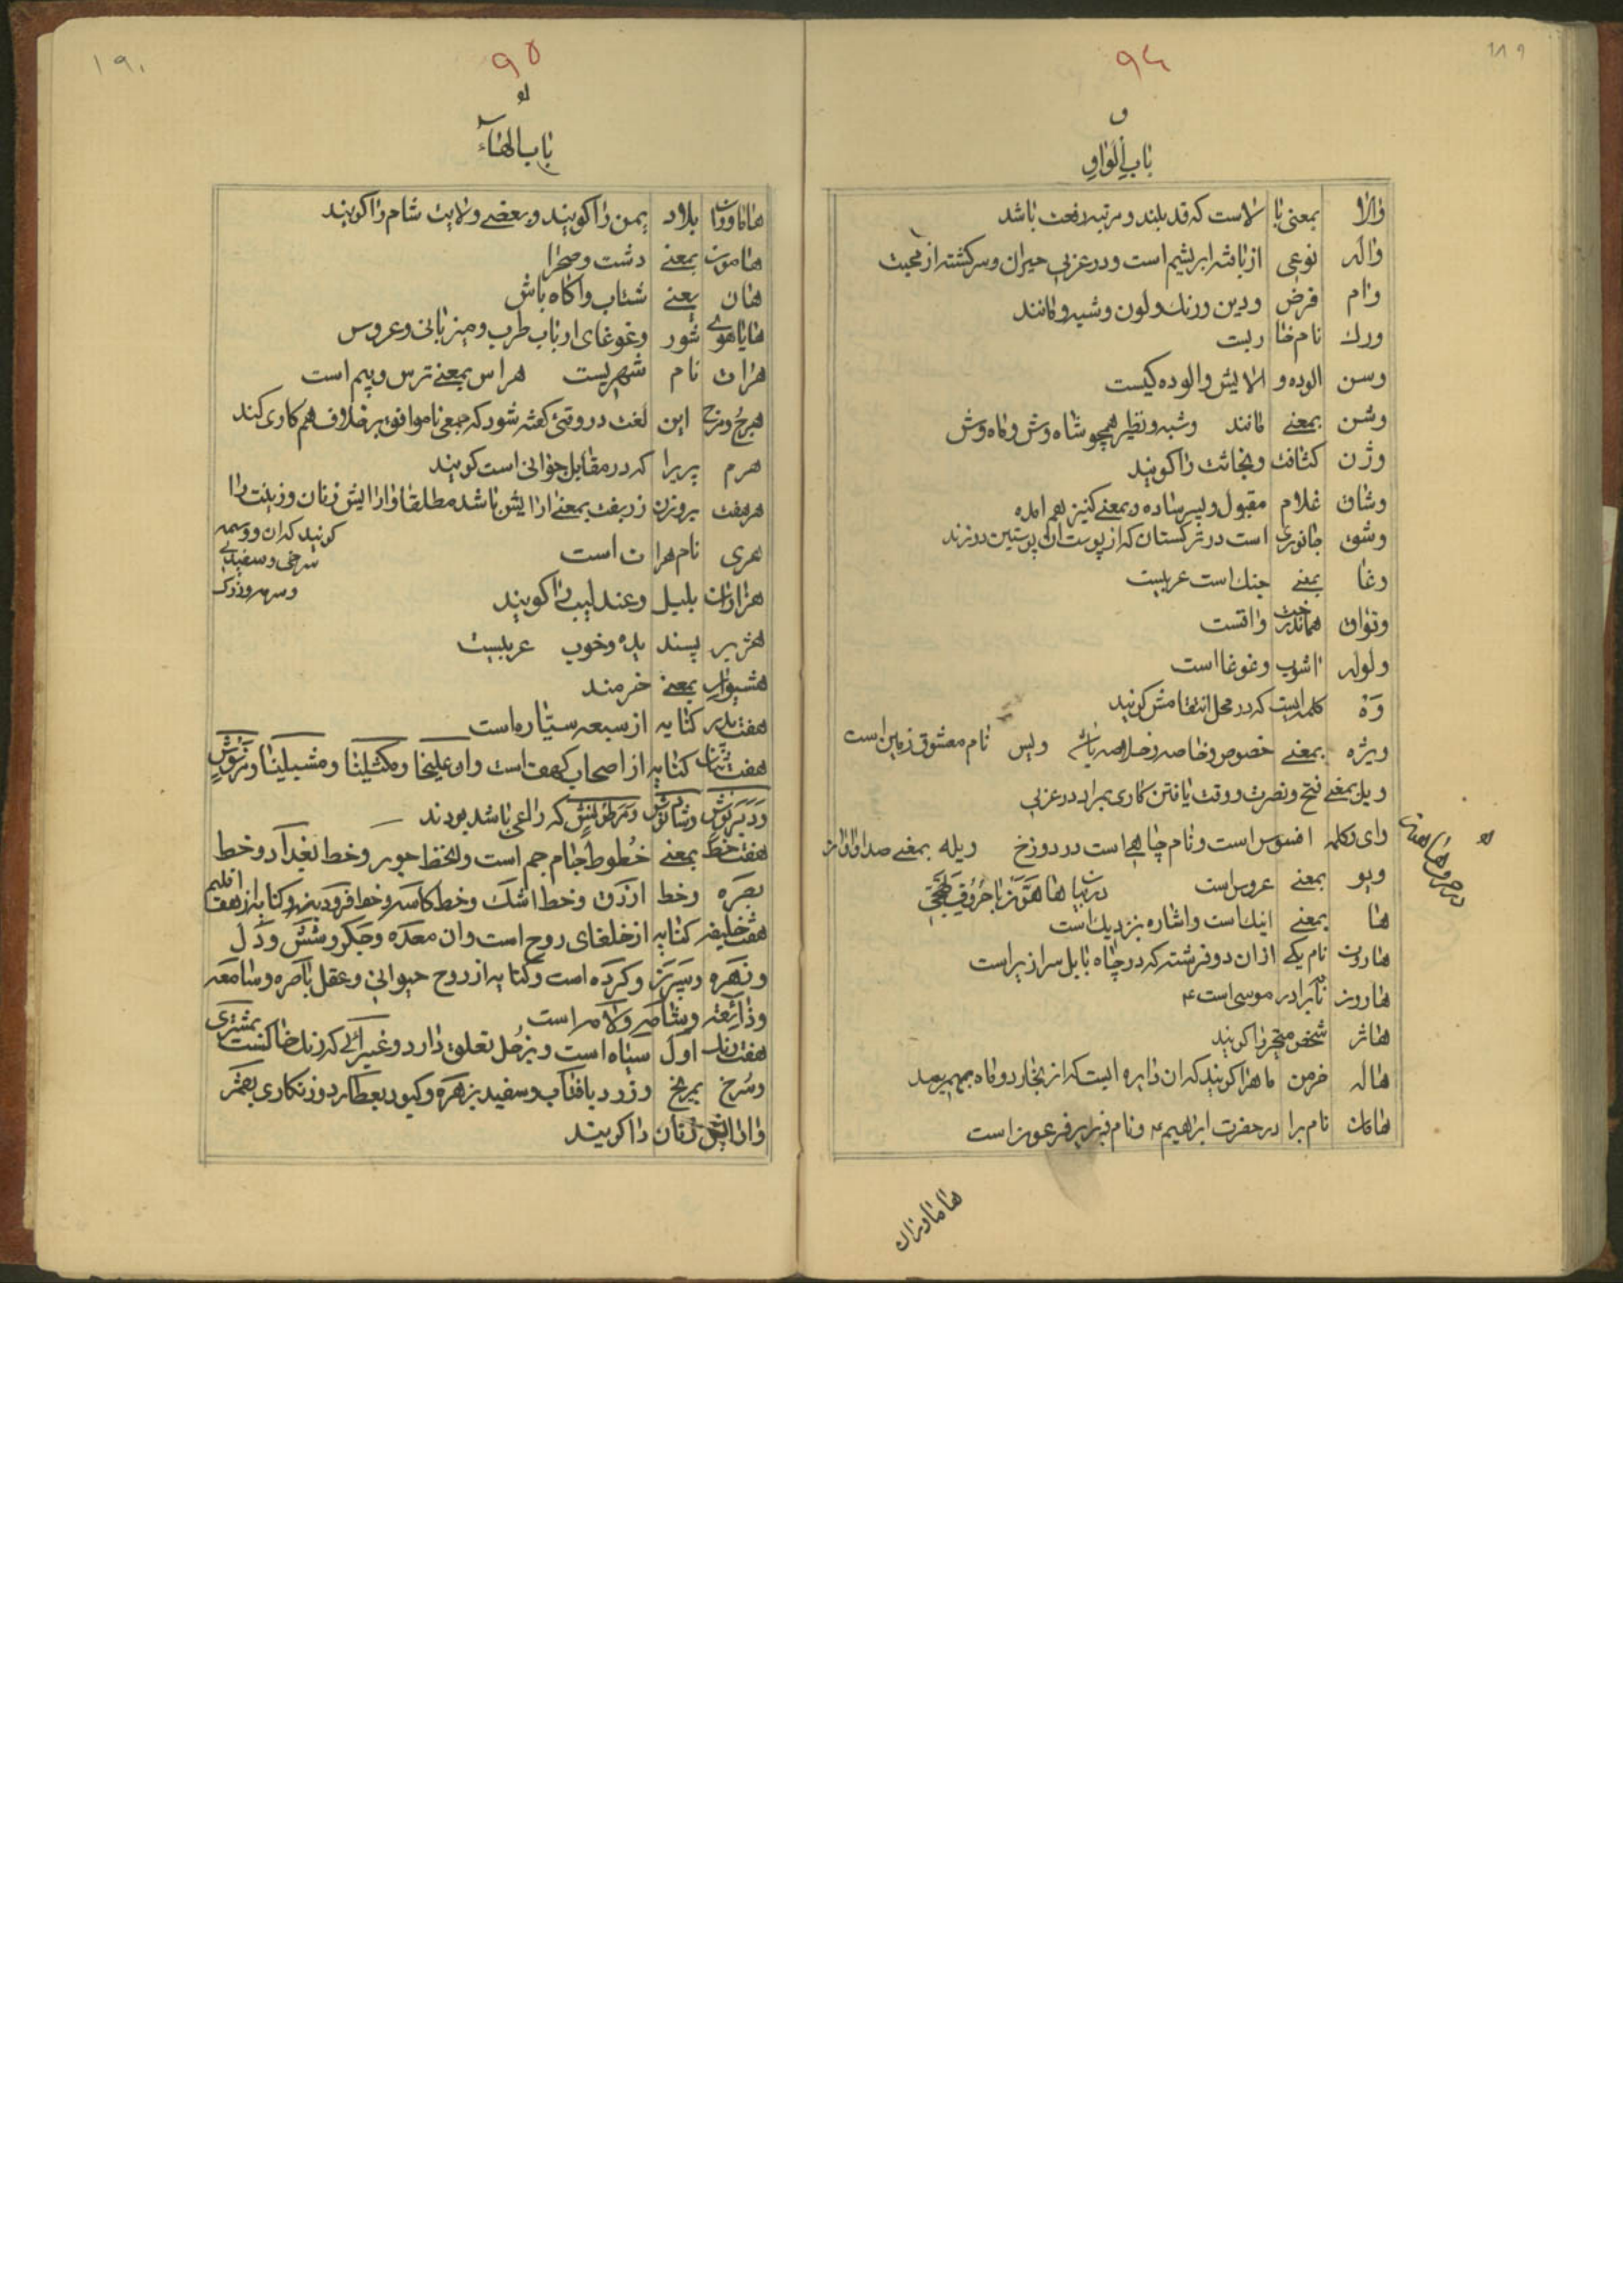 ۱۸۹
۹۴
و
باب الواو
والا بمعنی بالاست که قد بلند و مرتبه رفعت باشد
واله نوعی از بافته ابریشم است و در عربی حیران و سرکشته از محبت
وام قرض و دین و رنك و لون و شبیه و مانند
ورك نام خاریت
وسن الوده و الایش و الوده کیست
وشن بمعنی مانند وشبه و نظیر همچو شاه وش و ماه وش
وژن کثافت و نجاثت را کویند
وشاق غلام مقبول و پسر ساده و بمعنی کنیز هم امده
وشق جانوری است در ترکستان که از پوست ان پوستین دوزند
وغا بمعنی جنك است عربیست
ولوله اشوب و غوغا است
وه کلمه ایست که در محل کویند
ویژه بمعنی خصوص و خاصه و خلاصه باشد ویس نام معشوق رمین است
ویل بمعنی فتح و نصرت و وقت یافتن کاری بمراد در عربی
وای و کلمه افسوس است و نام چاهی است در دوزخ ویله بمعنی صدا و اواز
ویو بمعنی عروس است
ها بمعنی اینك است و اشاره بنزدیك است
هاروت نام یکی ازان دو فرشته که در چاه بابل سرازیر است
هارون نام برادر موسی است ع
هاژ شخص متحیر را کویند
هاله خرمن ماه را کویند که ان دایره ایست که از بخار دور ماه بهم رسد
هامان نام برادر حضرت ابراهیم ع و نام وزیر فرعون است
هاماوران
۱۹۰
۹۵
باب الهاء
هاماوران بلاد یمن را کویند و بعضی ولایت شام را کویند
هامون بمعنی دشت و صحرا
هان یعنی شتاب و اکاه باش
هایاهوی شور و غوغای ارباب طرب و میزبانی و عروس
هرات نام شهریست هراس بمعنی ترس و بیم است
هرج و مرج این لغت در وقتی کفته شود که جمعی ناموافق بر خلاف هم کاری کند
هرم پیر را که در مقابل جوانی است کویند
هرهفت بروزن زربفت بمعنی ارایش باشد مطلقا و ارایش زنان و زینت را
کویند که ان و وسمه
سرخی و سفیدی
و سرمه و زرك
هری نام هرات است
هزاران بلبل و عندلیب را کویند
هژیر پسندیده و خوب عربیست
هشیوار بمعنی خرمند
هفت پدر کنایه از سبعه سیاره است
هفت تنان کنایه از اصحاب کهف است و ان علیخا و مکثلینا و مشیلینا و مرنوش
و دبرنوش و شاذنوش و مرطونش که راعی باشد بودند
هفت خط بمعنی خطوط جام جم است و ان خط جور و خط بغداد و خط
بصره و خط ازرق و خط اشك و خط کاسه و خط فرودینه و کنایه از هفت اقلیم
هفت خلیفه کنایه از خلفای روح است و ان معده و جکر و شش و دل
و زهره و سپرز و کرده است و کنایه از روح حیوانی و عقل باصره و سامعه
و ذائقه و شامه و لامسه است
هفت رنك اول سیاه است و بزحل تعلق دارد و غبرائی که رنك خاکست بمشتری
و سرخ بمریخ و زرد بافتاب و سفید بزهره و کبود بعطارد و زنکاری بقمر
و ارایش زنان را کویند